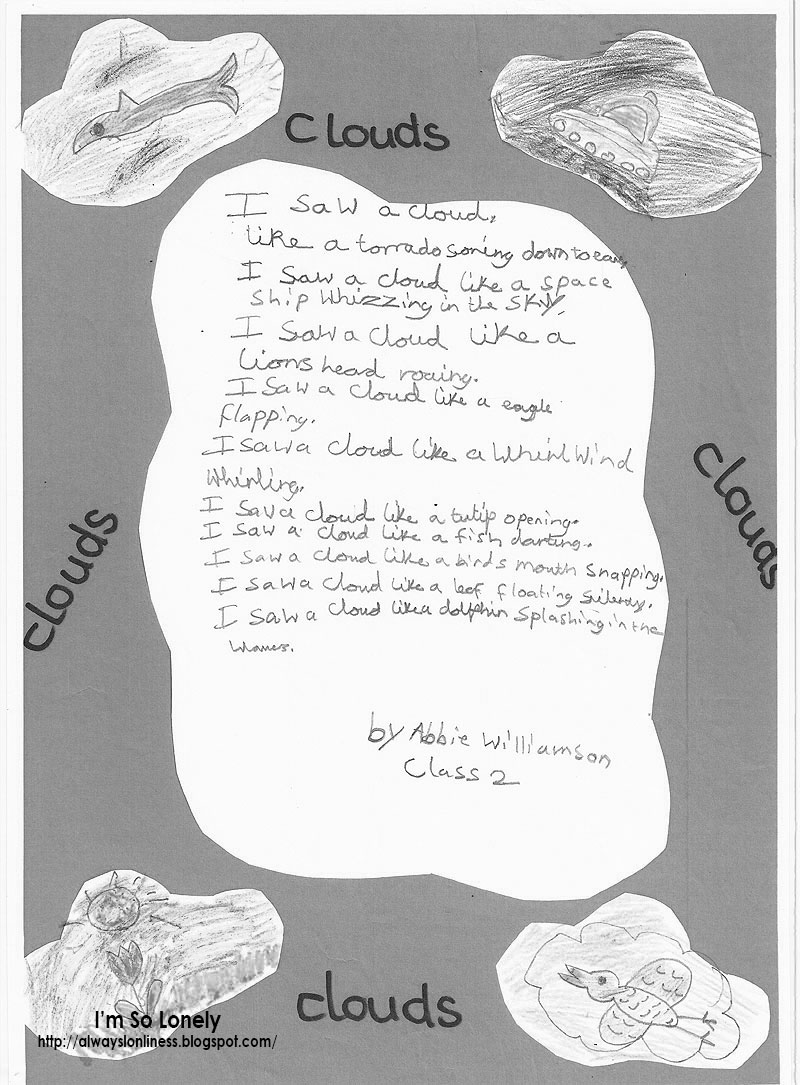 clouds
I saw a cloud,
like a torrado soning down to
I saw a cloud like a space
ship whizzing in the sky,
I saw a cloud like a
lions head roaing.
I saw a cloud like a eagle
flapping.
I saw a cloud like a whirl wind
whirling,
I sava cloud like a tulip opening.
I saw a cloud like a fish darting.
I saw a cloud like a birds mouth snapping.
I saw a cloud like a leef floating
I saw a cloud like a dolphin splashing in the
by Abbie Williamson
Class 2
clouds
clouds
clouds
I'm So Lonely
http://alwayslonliness.blogspot.com/